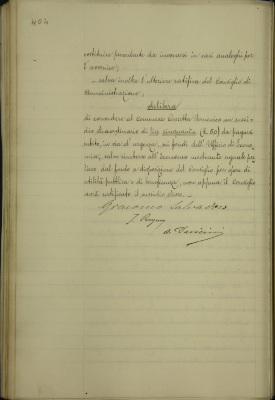 404
costituire precedente da invocarsi in casi analoghi per
l'avvenire;
- salva inoltre l'ulteriore ratifica del Consiglio di
Amministrazione;
delibera
di concedere al commesso Domenico un sussi-
dio straordinario di lire cinquanta (L. 50) da pagarsi
subito, in via d'urgenza, sui fondi dell'Ufficio di
salvo rimborso all' mediante eguale pre-
lievo dal fondo a disposizione del Consiglio per opere di
utilità pubblica e di beneficenza, non appena il Consiglio
avrà ratificato il sussidio stesso.
Giacomo Salvadori